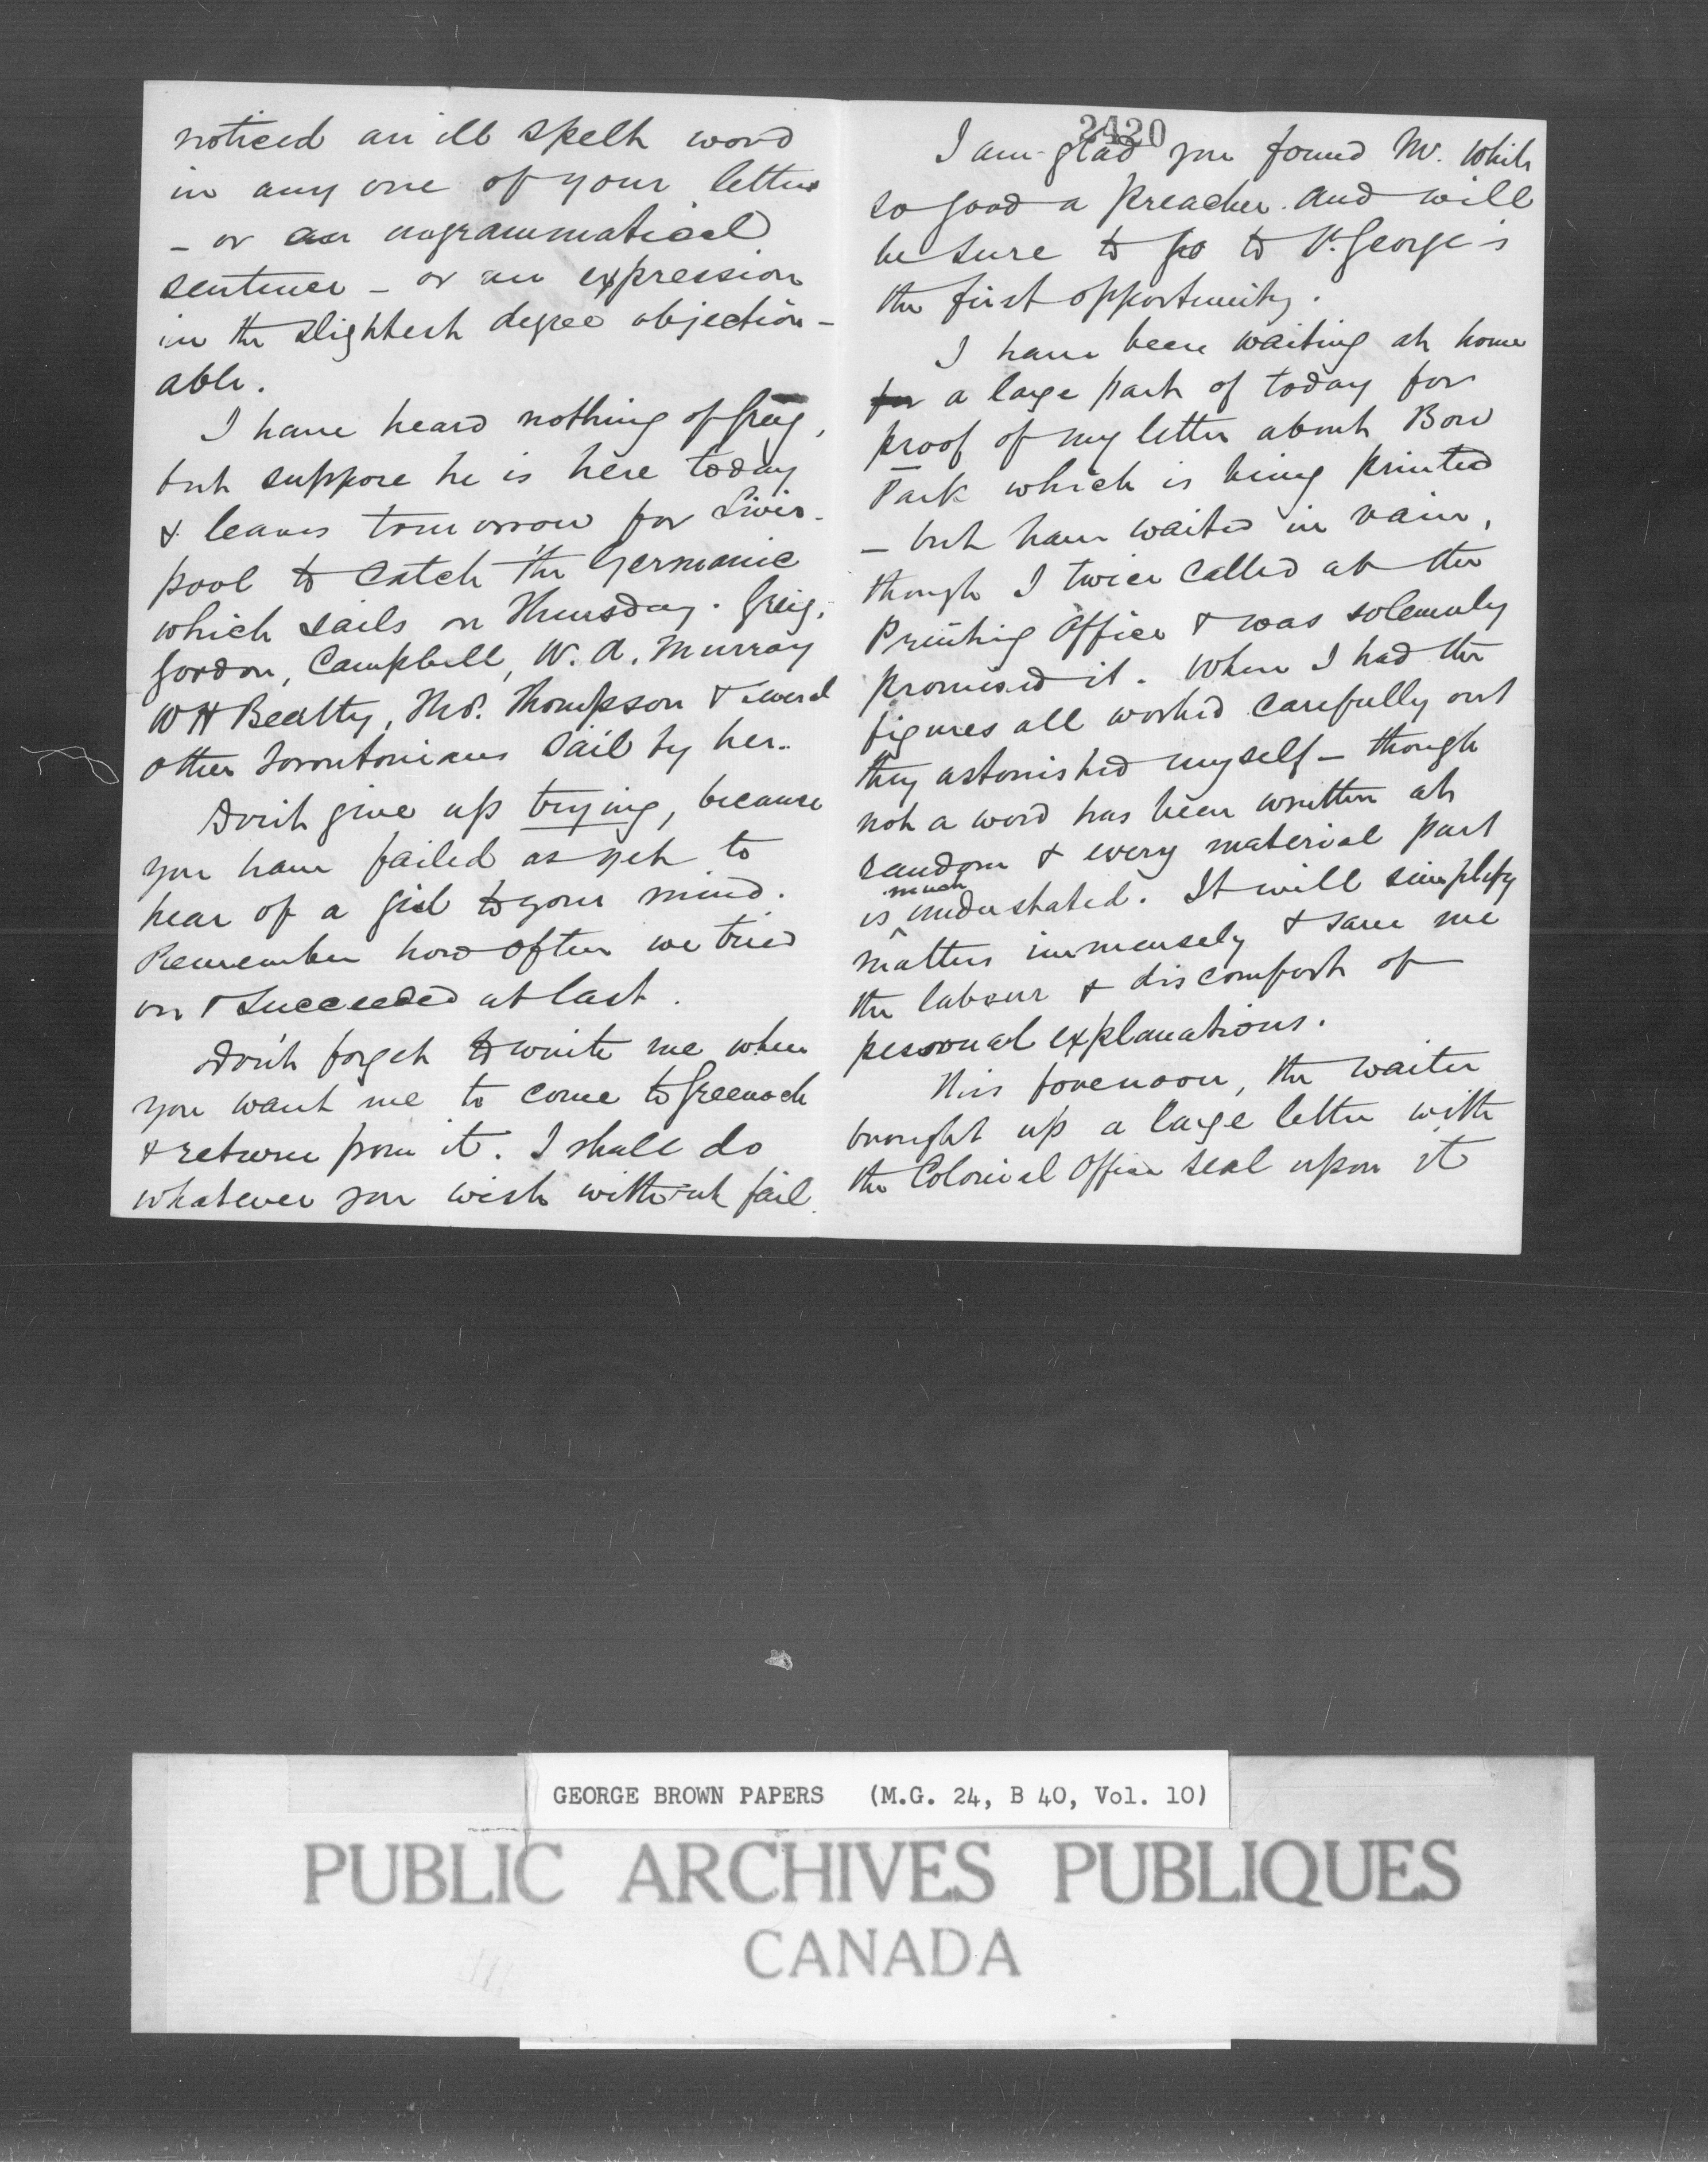 noticed an ill spelt word
in any one of your letters
- or an ungrammatical
sentence - or an expression
in the slightest degree objection-
able.
I have heard nothing of Greig,
but suppose he is here today
& leaves tomorrow for Liver-
pool to catch the Germanic
which sails on Thursday. Greig,
Gordon, Campbell, W. A. Murray
W H Beatty, Thos. Thompson & several
other Torontonians sail by her.
Don't give up trying, because
you have failed as yet to
hear of a girl to your mind.
Remember how often we tried
on & succeeded at last.
Don't forget to write me when
you want me to come to Greenock
& return from it. I shall do
whatever you wish without fail.
2420
I am glad you found Mr. White
so good a preacher and will
be sure to go to St. George's
the first opportunity.
I have been waiting at home
for a large part of today for
proof of my letter about Bow
Park which is being printed
- but have waited in vain,
though I twice called at the
Printing Office & was solemnly
promised it. When I had the
figures all worked carefully out
they astonished myself - though
not a word has been written at
random & every material part
is much understated. It will simplify
matters immensely & save me
the labour & discomfort of
personal explanations.
This forenoon, the waiter
brought up a large letter with
the Colonial Office seal upon it
GEORGE BROWN PAPERS (M.G. 24, B 40, Vol. 10)
PUBLIC ARCHIVES PUBLIQUES
CANADA